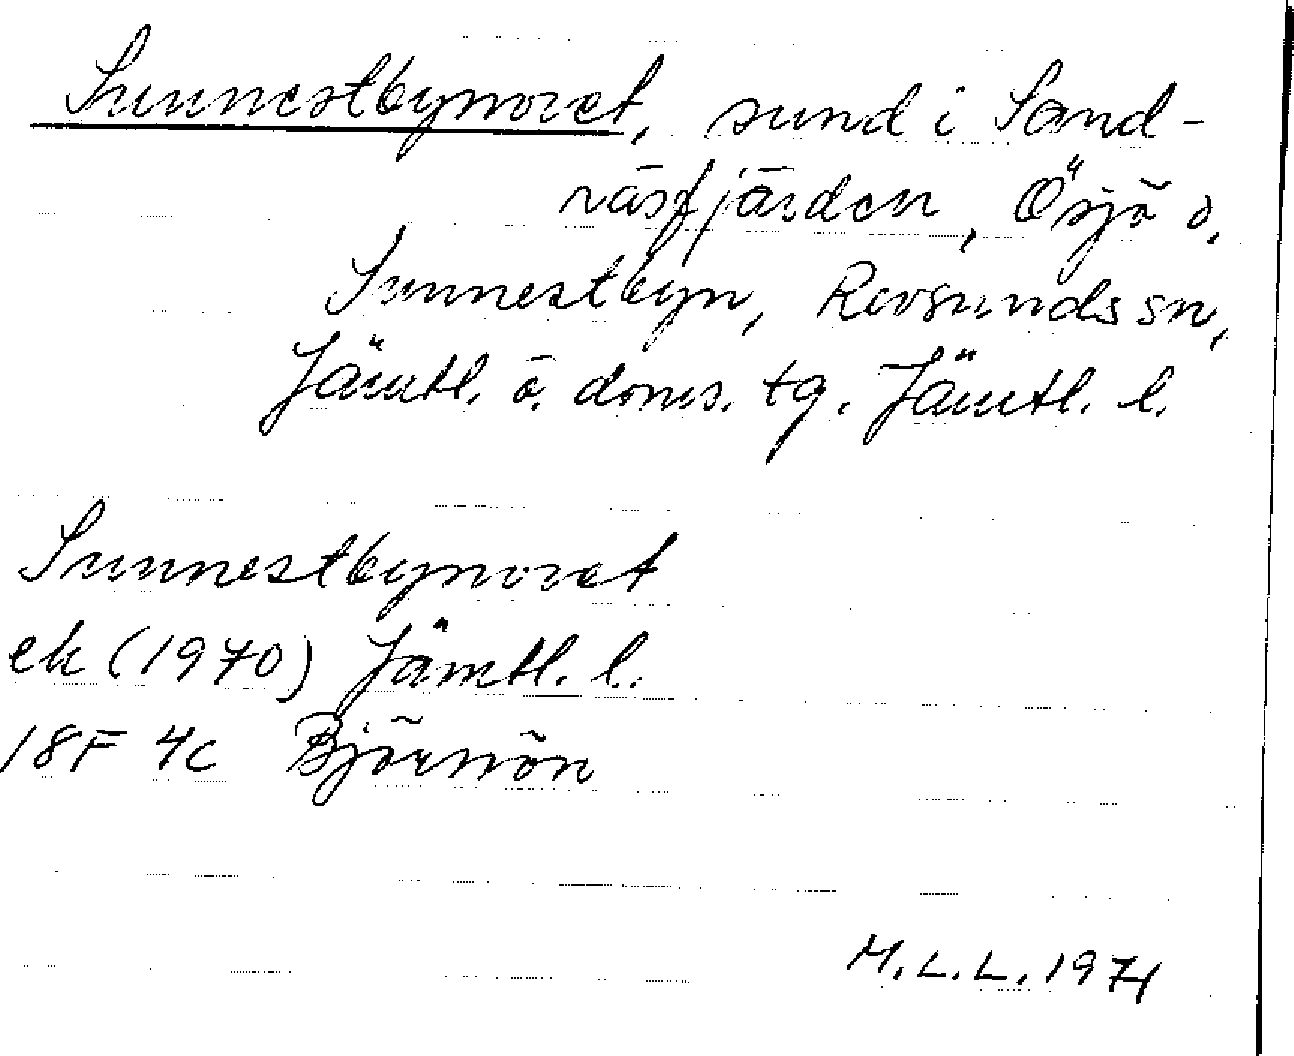 Sunnestbynoret, sund i Sand-
näsfjärden, Ösjö o.
Sunnestbyn, Revsunds sn,
Jämtl. ö. doms. tg. Jämtl. l.
Sunnestbynoret
ek (1970) Jämtl. l.
18F 4c Björnön
M.L.L. 1971